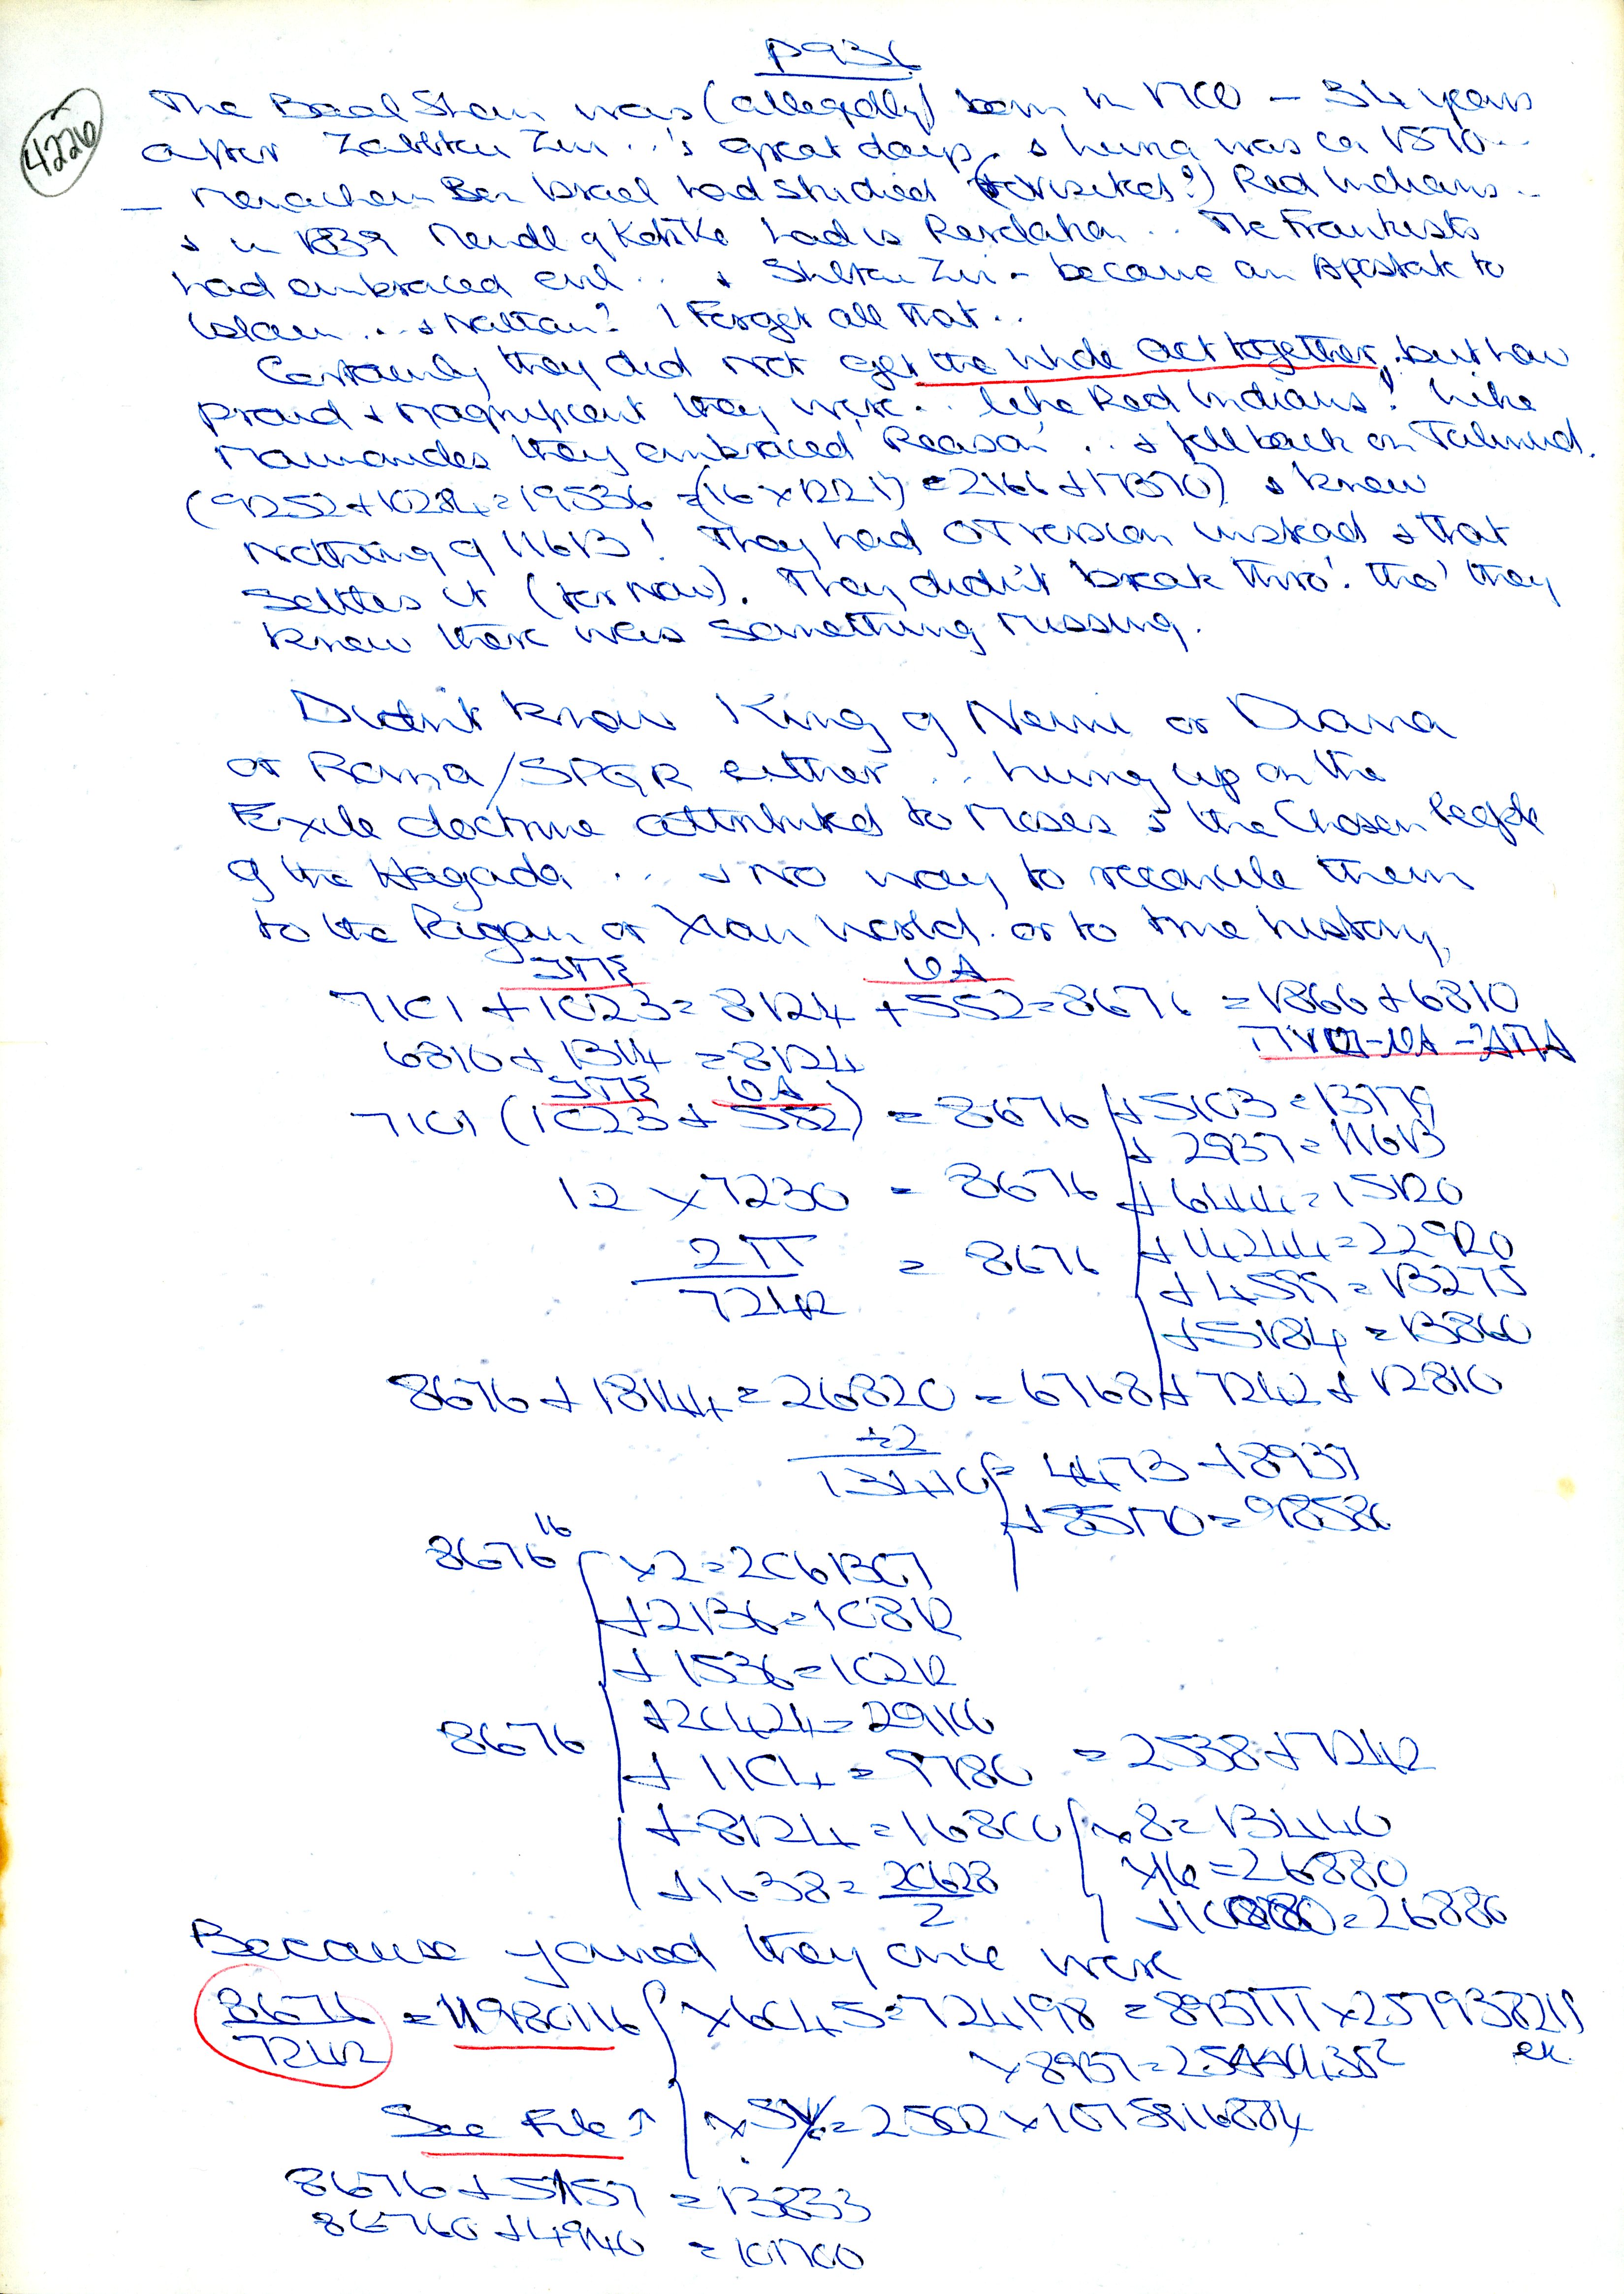 P936
4226
The Baal Shem was (allegedly) born in 1700 — 34 years
after Zevi..'s great days, & Luria was ca 1570...
— Menachem Ben Israel had studied Red Indians ..
& in 1839 Mendl of Kotzke had is Revelation .. The Frankists
had embraced evil .. & Zvi - became an Apostate to
Islam ... & Nathan? I Forget all that ..
Certainly they did not get the whole act together, but how
proud & magnificent they were .. like Red Indians! Like
Maimonides they embraced 'Reason' .. & fell back on Talmud.
(9252+10284=19536 =(16×1221) =2166+17370) & knew
Nothing of 11613! They had OT version instead & that
settles it (for now). They didn't break thro'. tho' they
knew there was something missing.
Didn't know King of Nemi or Diana
or Roma/SPQR either .. hung up on the
Exile doctrine attributed to Moses & the Chosen People
of the Hagada ... & no way to reconcile them
to the Pagan or Xian world. or to true history,
7101 + 1023 = 8124 + 552 = 8676 = 1866 + 6810
6810 + 1314 = 8124
7101 (1023 + 552) = 8676
+ 5103 = 13779
+ 2937 = 11613
12 × 7230 = 8676 + 6444 = 15120
2π = 8676 + 14244 = 22920
7242
+ 4599 = 13275
+ 5184 = 13860
8676 + 18144 = 26820 = 6768 + 7242 + 12810
÷2
13410 = 4473 + 8937
+ 85170 = 98580
8676 16 × 2 = 2061307
+ 2136 = 10812
+ 1536 = 10212
8676 + 20424 = 29100
+ 1104 = 9780 = 2538 + 7242
+ 8124 = 16800 × 8 = 13440
× 16 = 26880
+ 1638 = 20628
2
= 26880
Because joined they once were
8676 = 11980116 × 6045 = 724198 = 8937
7242
× 8937 =
See File ↑
8676 + 5157 = 13833
86760 + 14940 = 101700